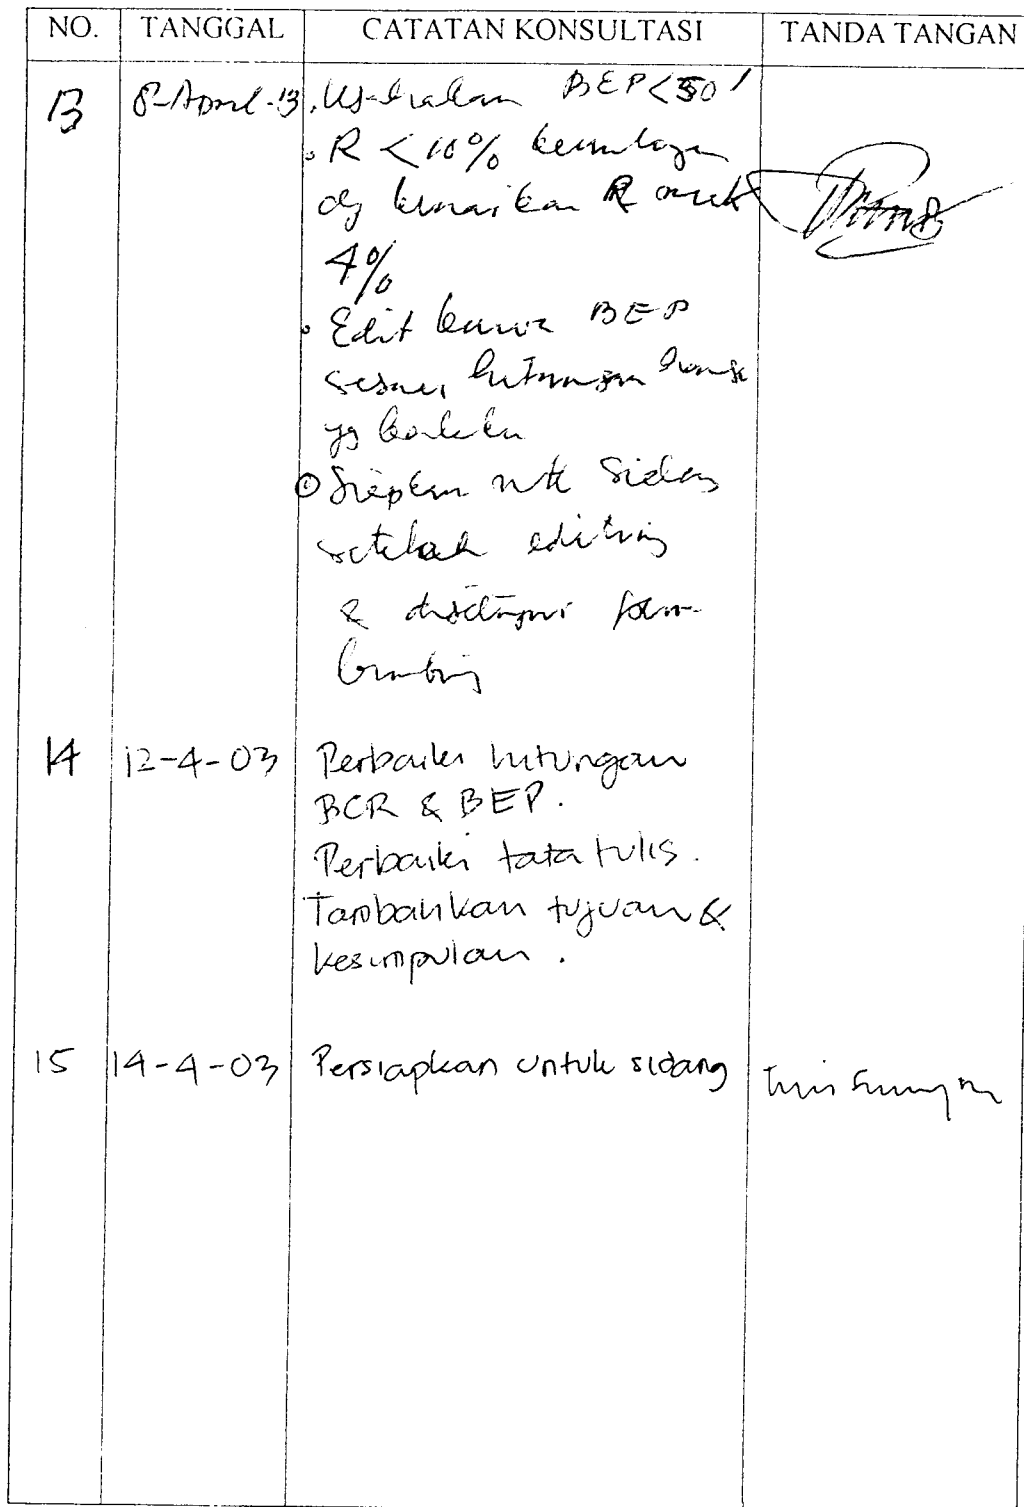 NO. TANGGAL CATATAN KONSULTASI TANDA TANGAN
13 8-April-'13 . Usahakan BEP < 50
. R < 10%
dg kenaikan R
4%
. Edit kurva BEP
sesuai hitungan
yg berlaku
Siapkan utk Sidang
setelah editing
& disetujui pem-
bimbing
14 12-4-03 Perbaiki hitungan
BCR & BEP.
Perbaiki tata tulis.
Tambahkan tujuan &
kesimpulan.
15 14-4-03 Persiapkan untuk sidang